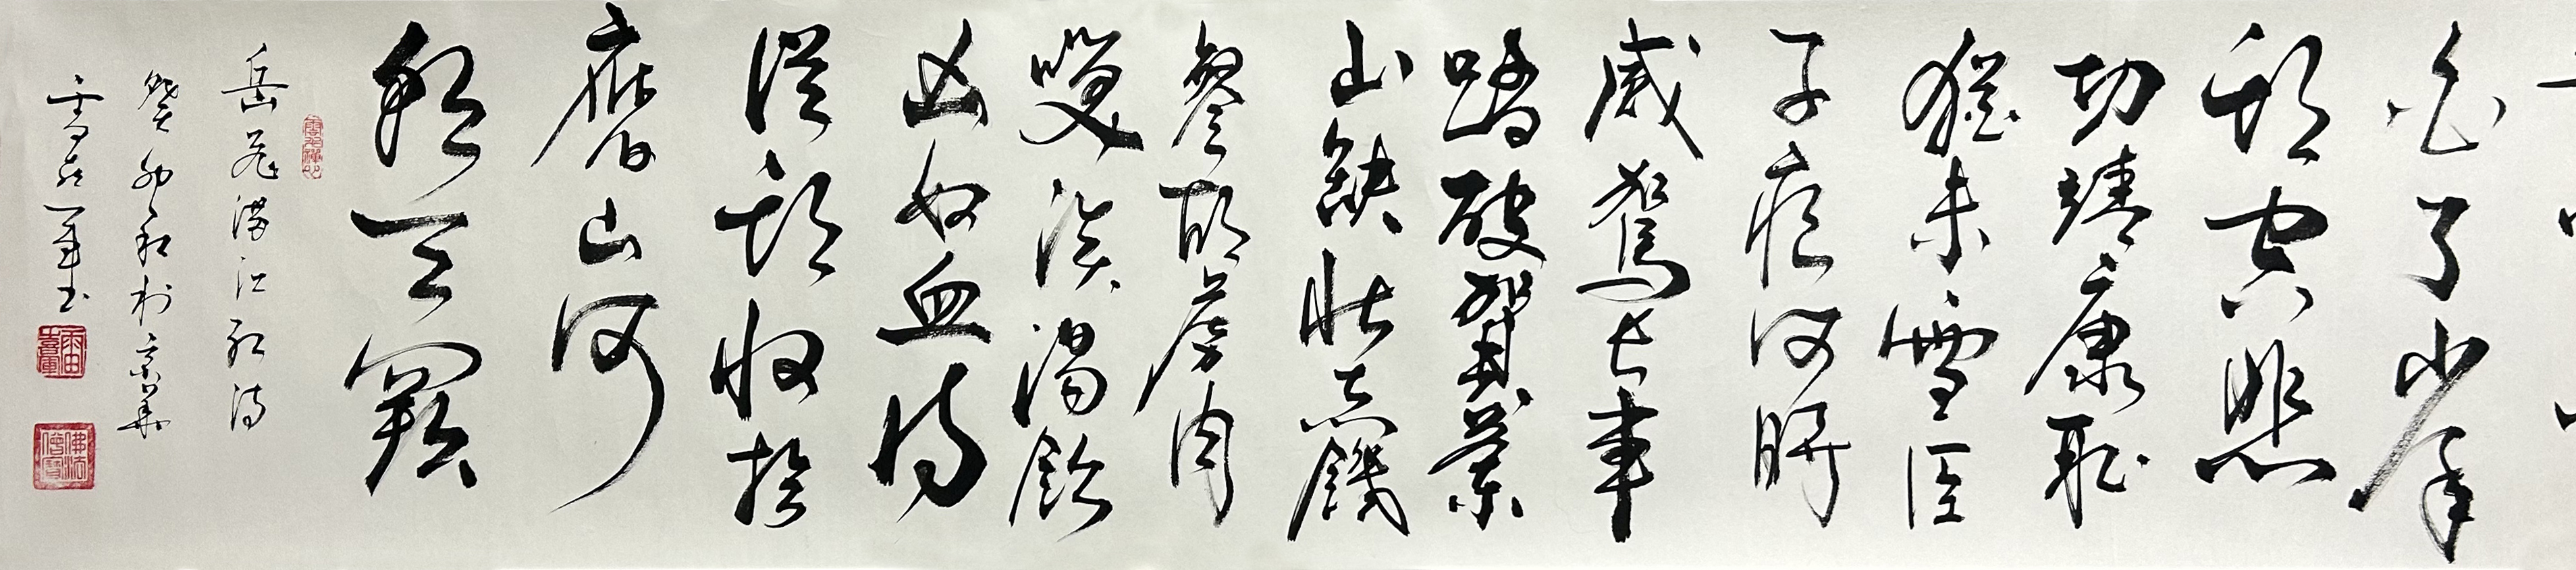 白了少年
頭空悲
切靖康耻
猶未雪臣
子恨何時
滅駕長車
踏破賀蘭
山缺壯志饑
餐胡虜肉
笑談渴飲
匈奴血待
從頭收拾
舊山河
朝天闕
岳飛滿江紅詞
癸卯秋於京華
佛法僧寶